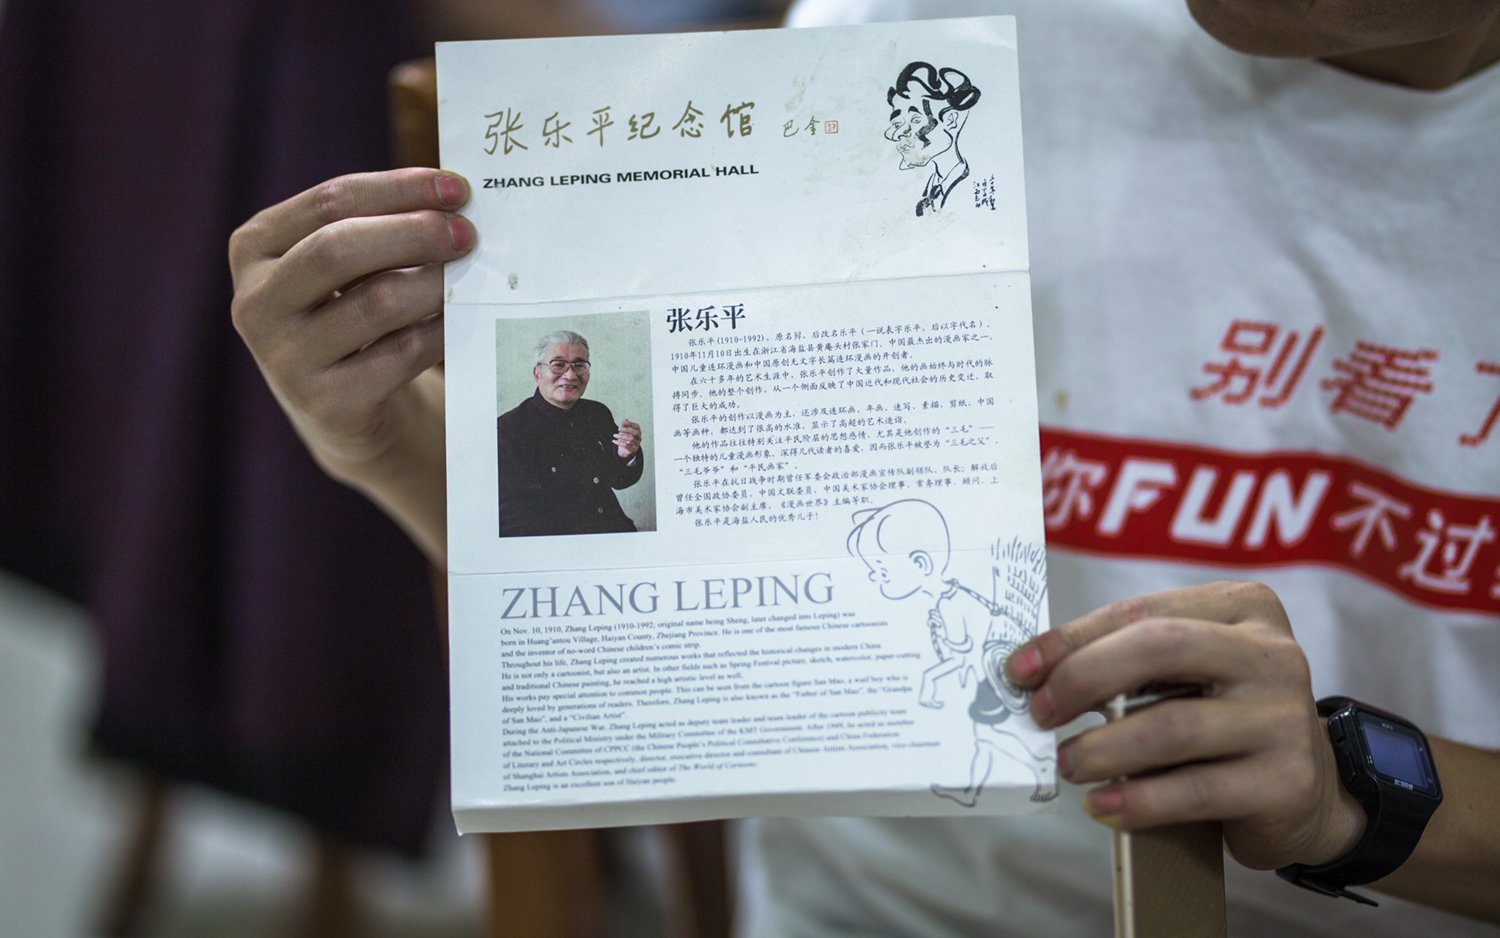 张乐平纪念馆 巴金
ZHANG LEPING MEMORIAL HALL
张乐平
张乐平(1910-1992)，原名昇，后改名乐平（一说表字乐平，后以字代名）。
1910年11月10日出生在浙江省海盐县黄庵头村张家门。中国最杰出的漫画家之一，
中国儿童连环漫画和中国原创无文字长篇连环漫画的开创者。
在六十多年的艺术生涯中，张乐平创作了大量作品，他的画始终与时代的脉
搏同步，他的整个创作，从一个侧面反映了中国近代和现代社会的历史变迁，取
得了巨大的成功。
张乐平的创作以漫画为主，还涉及连环画、年画、速写、素描、剪纸、中国
画等画种，都达到了很高的水准，显示了高超的艺术造诣。
他的作品往往特别关注平民阶层的思想感情，尤其是他创作的“三毛”——
一个独特的儿童漫画形象，深得几代读者的喜爱，因而张乐平被誉为“三毛之父”、
“三毛爷爷”和“平民画家”。
张乐平在抗日战争时期曾任军委会政治部漫画宣传队副领队、队长；解放后
曾任全国政协委员，中国文联委员，中国美术家协会理事，常务理事，顾问，上
海市美术家协会副主席，《漫画世界》主编等职。
张乐平是海盐人民的优秀儿子！
ZHANG LEPING
On Nov. 10, 1910, Zhang Leping (1910-1992; original name being Sheng, later changed into Leping) was
born in Huang'antou Village, Haiyan County, Zhejiang Province. He is one of the most famous Chinese cartoonists
and the inventor of no-word Chinese children's comic strip.
Throughout his life, Zhang Leping created numerous works that reflected the historical changes in modern China.
He is not only a cartoonist, but also an artist. In other fields such as Spring Festival picture, sketch, watercolor, paper-cutting
and traditional Chinese painting, he reached a high artistic level as well.
His works pay special attention to common people. This can be seen from the cartoon figure San Mao, a waif boy who is
deeply loved by generations of readers. Therefore, Zhang Leping is also known as the "Father of San Mao", the "Grandpa
of San Mao", and a "Civilian Artist".
During the Anti-Japanese War, Zhang Leping acted as deputy team leader and team leader of the cartoon publicity team
attached to the Political Ministry under the Military Committee of the KMT Government. After 1949, he acted as member
of the National Committee of CPPCC (the Chinese People's Political Consultative Conference) and China Federation
of Literary and Art Circles respectively, director, executive director and consultant of Chinese Artists Association, vice-chairman
of Shanghai Artists Association, and chief editor of The World of Cartoons.
Zhang Leping is an excellent son of Haiyan people.
别看了
你FUN不过